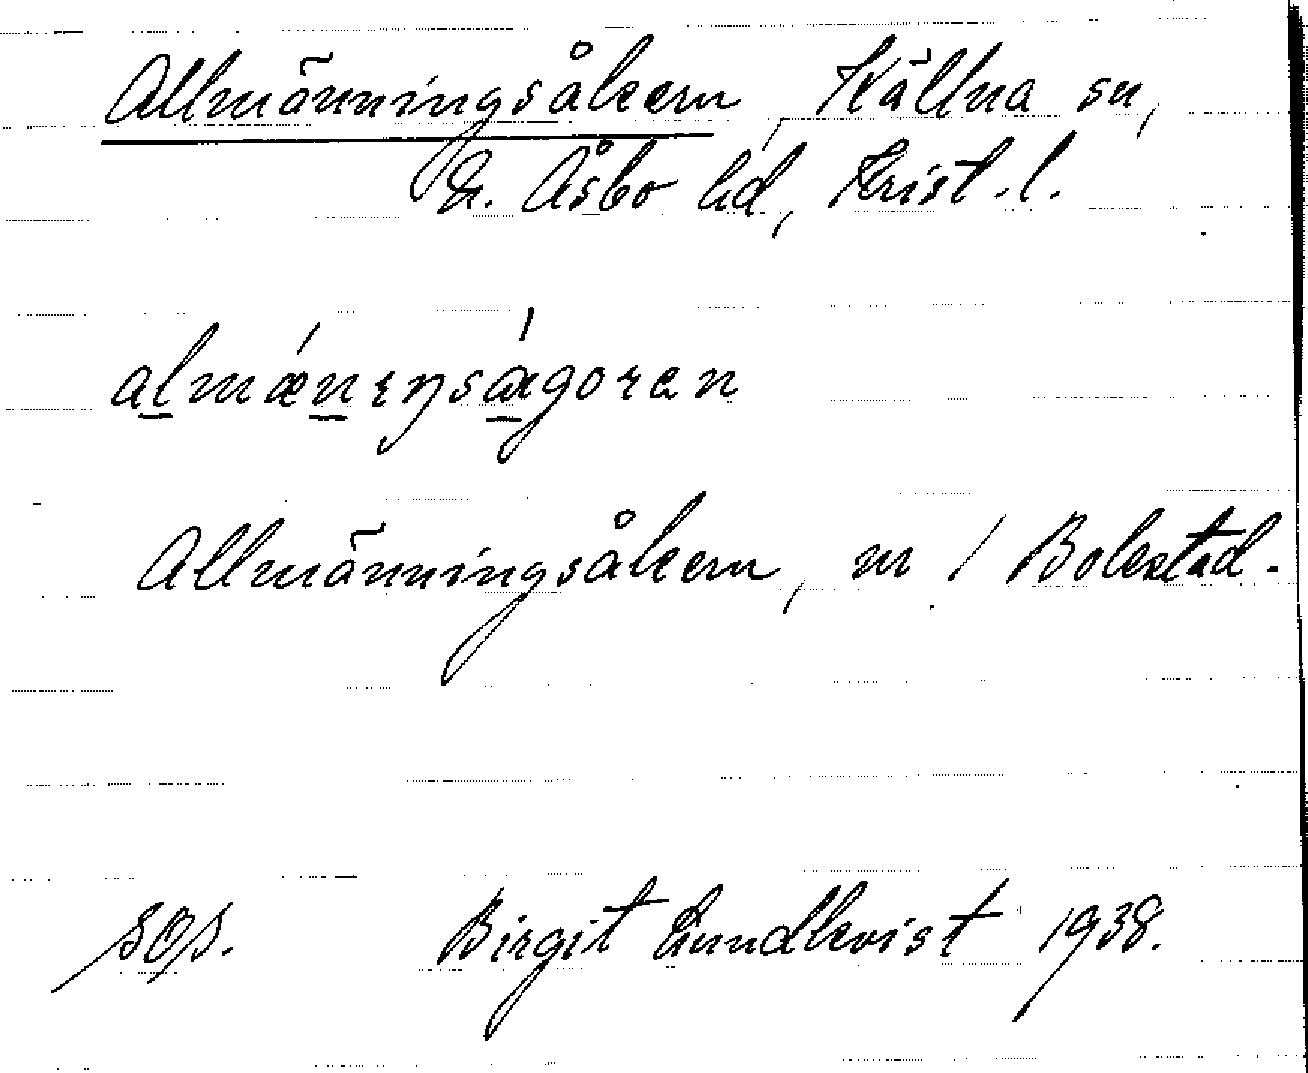 Allmänningsåkern Källna sn,
N. Åsbo hd, Krist. l.
almǽnɪŋságoren
Allmänningsåkern, nr 1 Bolestad.
SOS. Birgit Lundkvist 1938.